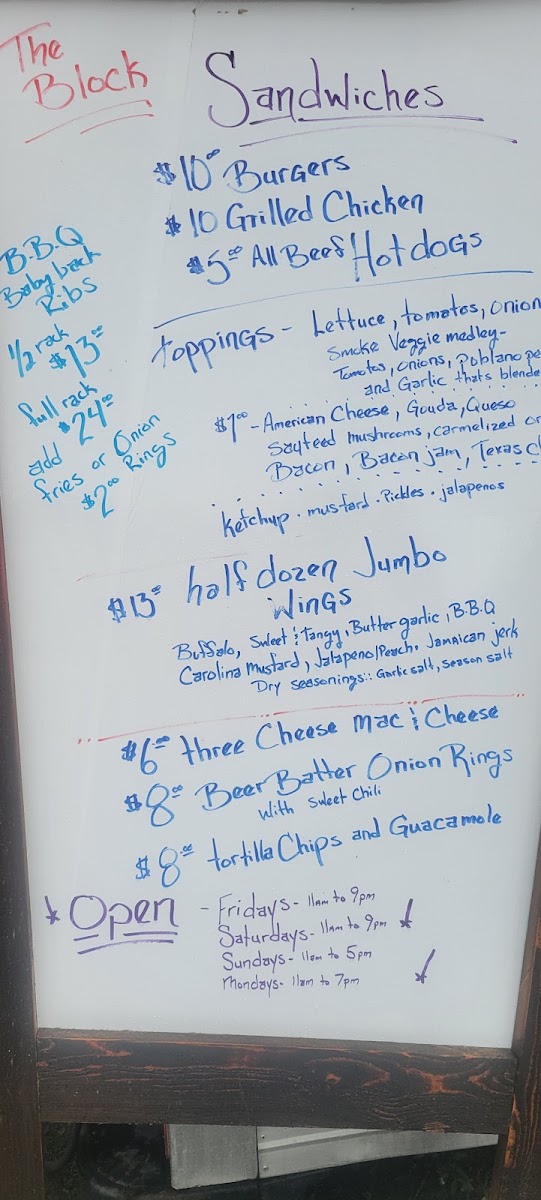 The
Block
Sandwiches
$10.00 Burgers
$10 Grilled Chicken
$5.00 All Beef Hotdogs
B.B.Q
Baby back
Ribs
1/2 rack
$13.00
full rack
$24.00
add
fries or Onion
$2.00 Rings
toppings - Lettuce, tomatos, onion
Smoke Veggie medley-
Tomatos, onions, poblano pe
and Garlic thats blende
$1.00 - American Cheese, Gouda, Queso
Sauteed mushrooms, carmelized on
Bacon, Bacon jam, Texas c
ketchup . mustard . Pickles . jalapenos
$13.00 half dozen Jumbo
Wings
Buffalo, Sweet & Tangy, Butter garlic, B.B.Q
Carolina Mustard, Jalapeno/Peach. Jamaican jerk
Dry seasonings:: Garlic salt, season salt
$6.00 three Cheese mac & Cheese
$8.00 Beer Batter Onion Rings
With Sweet Chili
$8.00 tortilla Chips and Guacamole
Open - Fridays - 11am to 9pm
Saturdays - 11am to 9pm
Sundays - 11am to 5pm
Mondays - 11am to 7pm